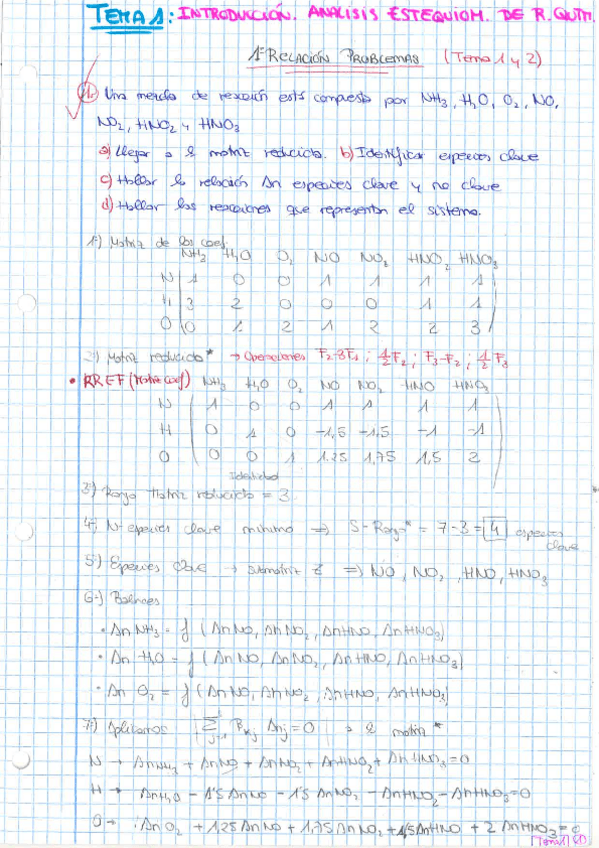 TEMA 1: INTRODUCCIÓN. ANALISIS ESTEQUIOM. DE R. QUIM.
1ª RELACIÓN PROBLEMAS (Tema 1 y 2)
1. Una mezcla de reacción está compuesta por NH3, H2O, O2, NO,
NO2, HNO2 y HNO3
a) Llegar a la matriz reducida. b) Identificar especies clave
c) Hallar la relación Δn especies clave y no clave
d) Hallar las reacciones que representan el sistema.
1º) Matriz de los coef.
NH3 H2O O2 NO NO2 HNO2 HNO3
N 1 0 0 1 1 1 1
H 3 2 0 0 0 1 1
O 0 1 2 1 2 2 3
2º) Matriz reducida* → Operaciones F2-3F1; 1/2 F2; F3-F2; 1/2 F3
• RREF (Matriz coef) NH3 H2O O2 NO NO2 HNO HNO3
N 1 0 0 1 1 1 1
H 0 1 0 -1,5 -1,5 -1 -1
O 0 0 1 1.25 1,75 1,5 2
Identidad
3º) Rango Matriz reducida = 3
4º) Nº especies clave mínimo => S - Rang* = 7-3 = 4 especies clave
5º) Especies clave → submatriz => NO, NO2, HNO, HNO3
6º) Balances
• Δn NH3 = f (Δn NO, Δn NO2, Δn HNO, Δn HNO3)
• Δn H2O = f (Δn NO, Δn NO2, Δn HNO, Δn HNO3)
• Δn O2 = f (Δn NO, Δn NO2, Δn HNO, Δn HNO3)
7º) Aplicamos Σ Bkj Δnj = 0 a la matriz *
N → Δn NH3 + Δn NO + Δn NO2 + Δn HNO2 + Δn HNO3 = 0
H → Δn H2O - 1'5 Δn NO - 1'5 Δn NO2 - Δn HNO2 - Δn HNO3 = 0
O → Δn O2 + 1,25 Δn NO + 1,75 Δn NO2 + 1,5 Δn HNO + 2 Δn HNO3 = 0